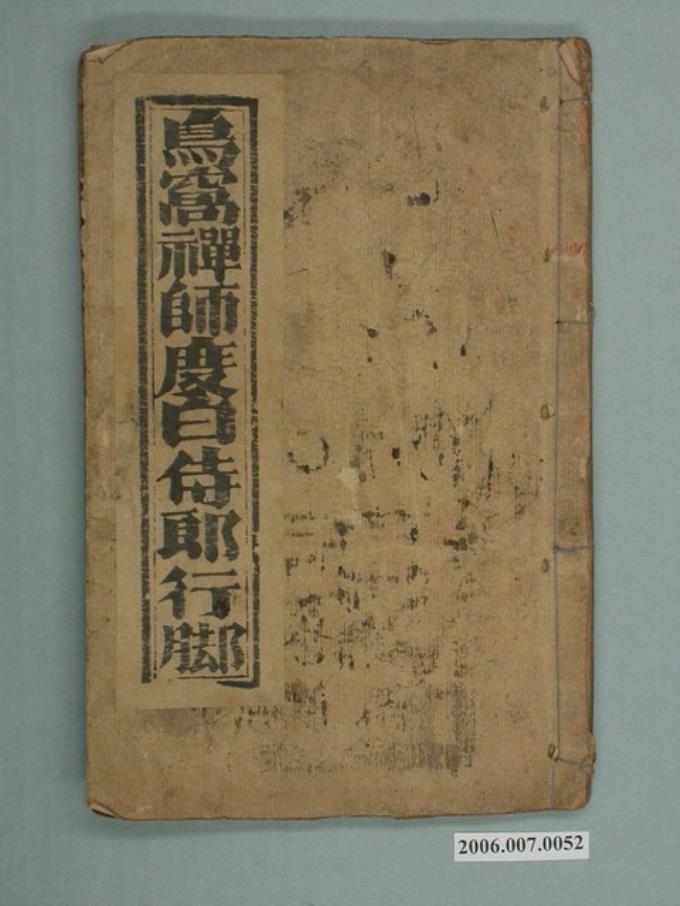 鳥窩禪師度白侍郎行脚
2006.007.0052